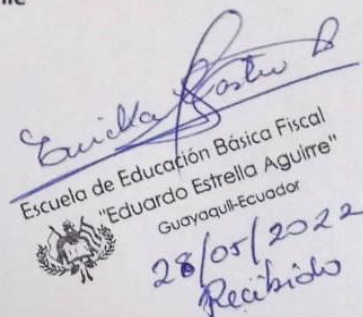 Ericka Castro B
Escuela de Educación Básica Fiscal
"Eduardo Estrella Aguirre"
Guayaquil-Ecuador
28/05/2022
Recibido